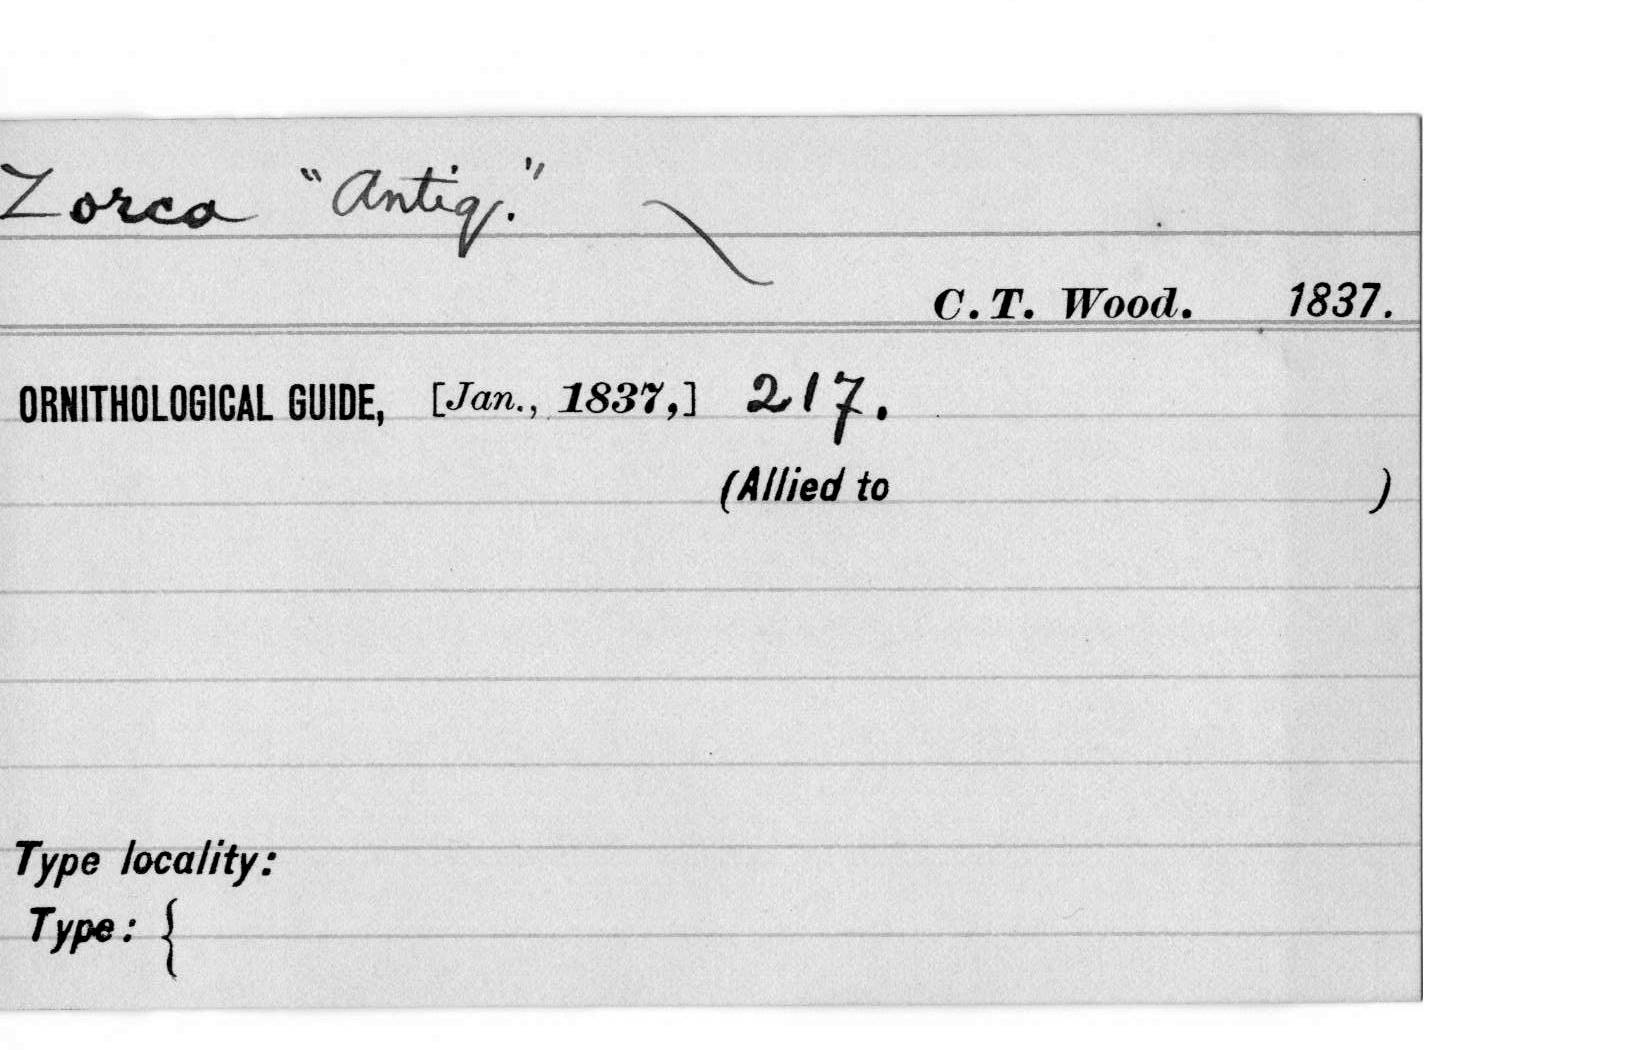 Zorca "Antiq."
C. T. Wood. 1837.
ORNITHOLOGICAL GUIDE, [Jan., 1837,] 217.
(Allied to )
Type locality:
Type: {